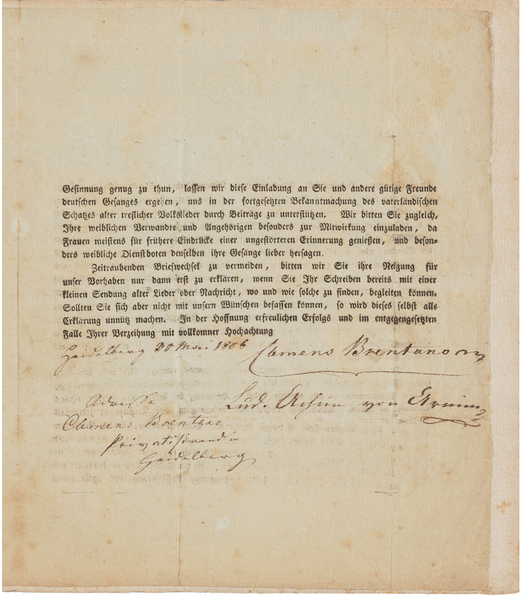 Gesinnung genug zu thun, lassen wir diese Einladung an Sie und andere gütige Freunde
deutschen Gesanges ergehen, uns in der fortgesetzten Bekanntmachung des vaterländischen
Schatzes alter treflicher Volkslieder durch Beiträge zu unterstützen. Wir bitten Sie zugleich,
Ihre weiblichen Verwandte und Angehörigen besonders zur Mitwirkung einzuladen, da
Frauen meistens für frühere Eindrücke einer ungestörteren Erinnerung genießen, und beson-
ders weibliche Dienstboten denselben ihre Gesange lieber hersagen.
Zeitraubenden Briefwechsel zu vermeiden, bitten wir Sie ihre Neigung für
unser Vorhaben nur dann erst zu erklären, wenn Sie Ihr Schreiben bereits mit einer
kleinen Sendung alter Lieder oder Nachricht, wo und wie solche zu finden, begleiten können.
Sollten Sie sich aber nicht mit unsern Wünschen befassen können, so wird dieses selbst alle
Erklärung unnütz machen. In der Hoffnung erfreulichen Erfolgs und im entgegengesetzten
Falle Ihrer Verzeihung mit vollkommner Hochachtung
Heidelberg Mai 1806 Clemens Brentano
Lud. Achim von Arnim
Adresse
Clemens Brentano
Heidelberg